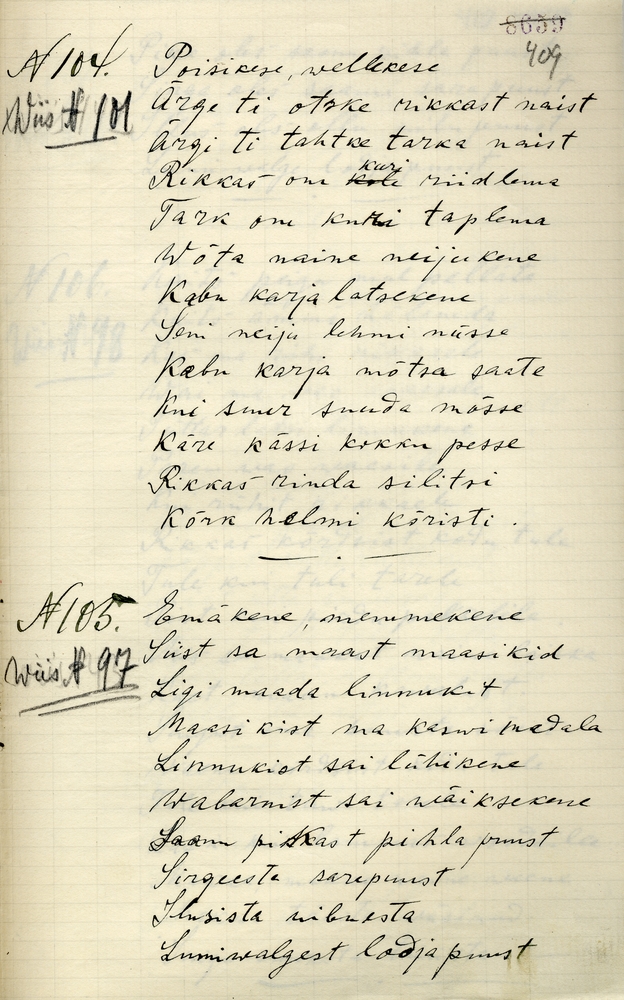 8659
409
N 104.
Wiis N 101
Poisikese, wellekese
Ärge ti otske rikkast naist
Ärgi ti tahtke tarka naist
Rikkas om kuri riidlema
Tark om kuri taplema
Wõta naine neijukene
Kabu karja latsekene
Seni neiju lehmi nüsse
Kabu karja mõtsa saate
Kui suur suuda mõsse
Käre kässi kokku pesse
Rikkas rinda silitsi
Kõrk helmi kõristi.
N 105.
Wiis N 97
Emäkene, memmekene
Siist sa maast maasikid
Ligi maada linnukit
Maasikist ma kaswi madala
Linnukist sai lühikene
Wabarnist sai wäiksekene
pitkast pihlapuust
Sirgeesta sarepuust
Ilusista nibuesta
Lumiwalgest lodjapuust